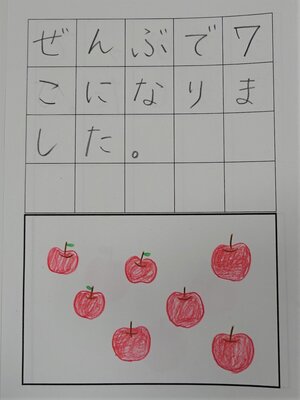 ぜんぶで7
こになりま
した。